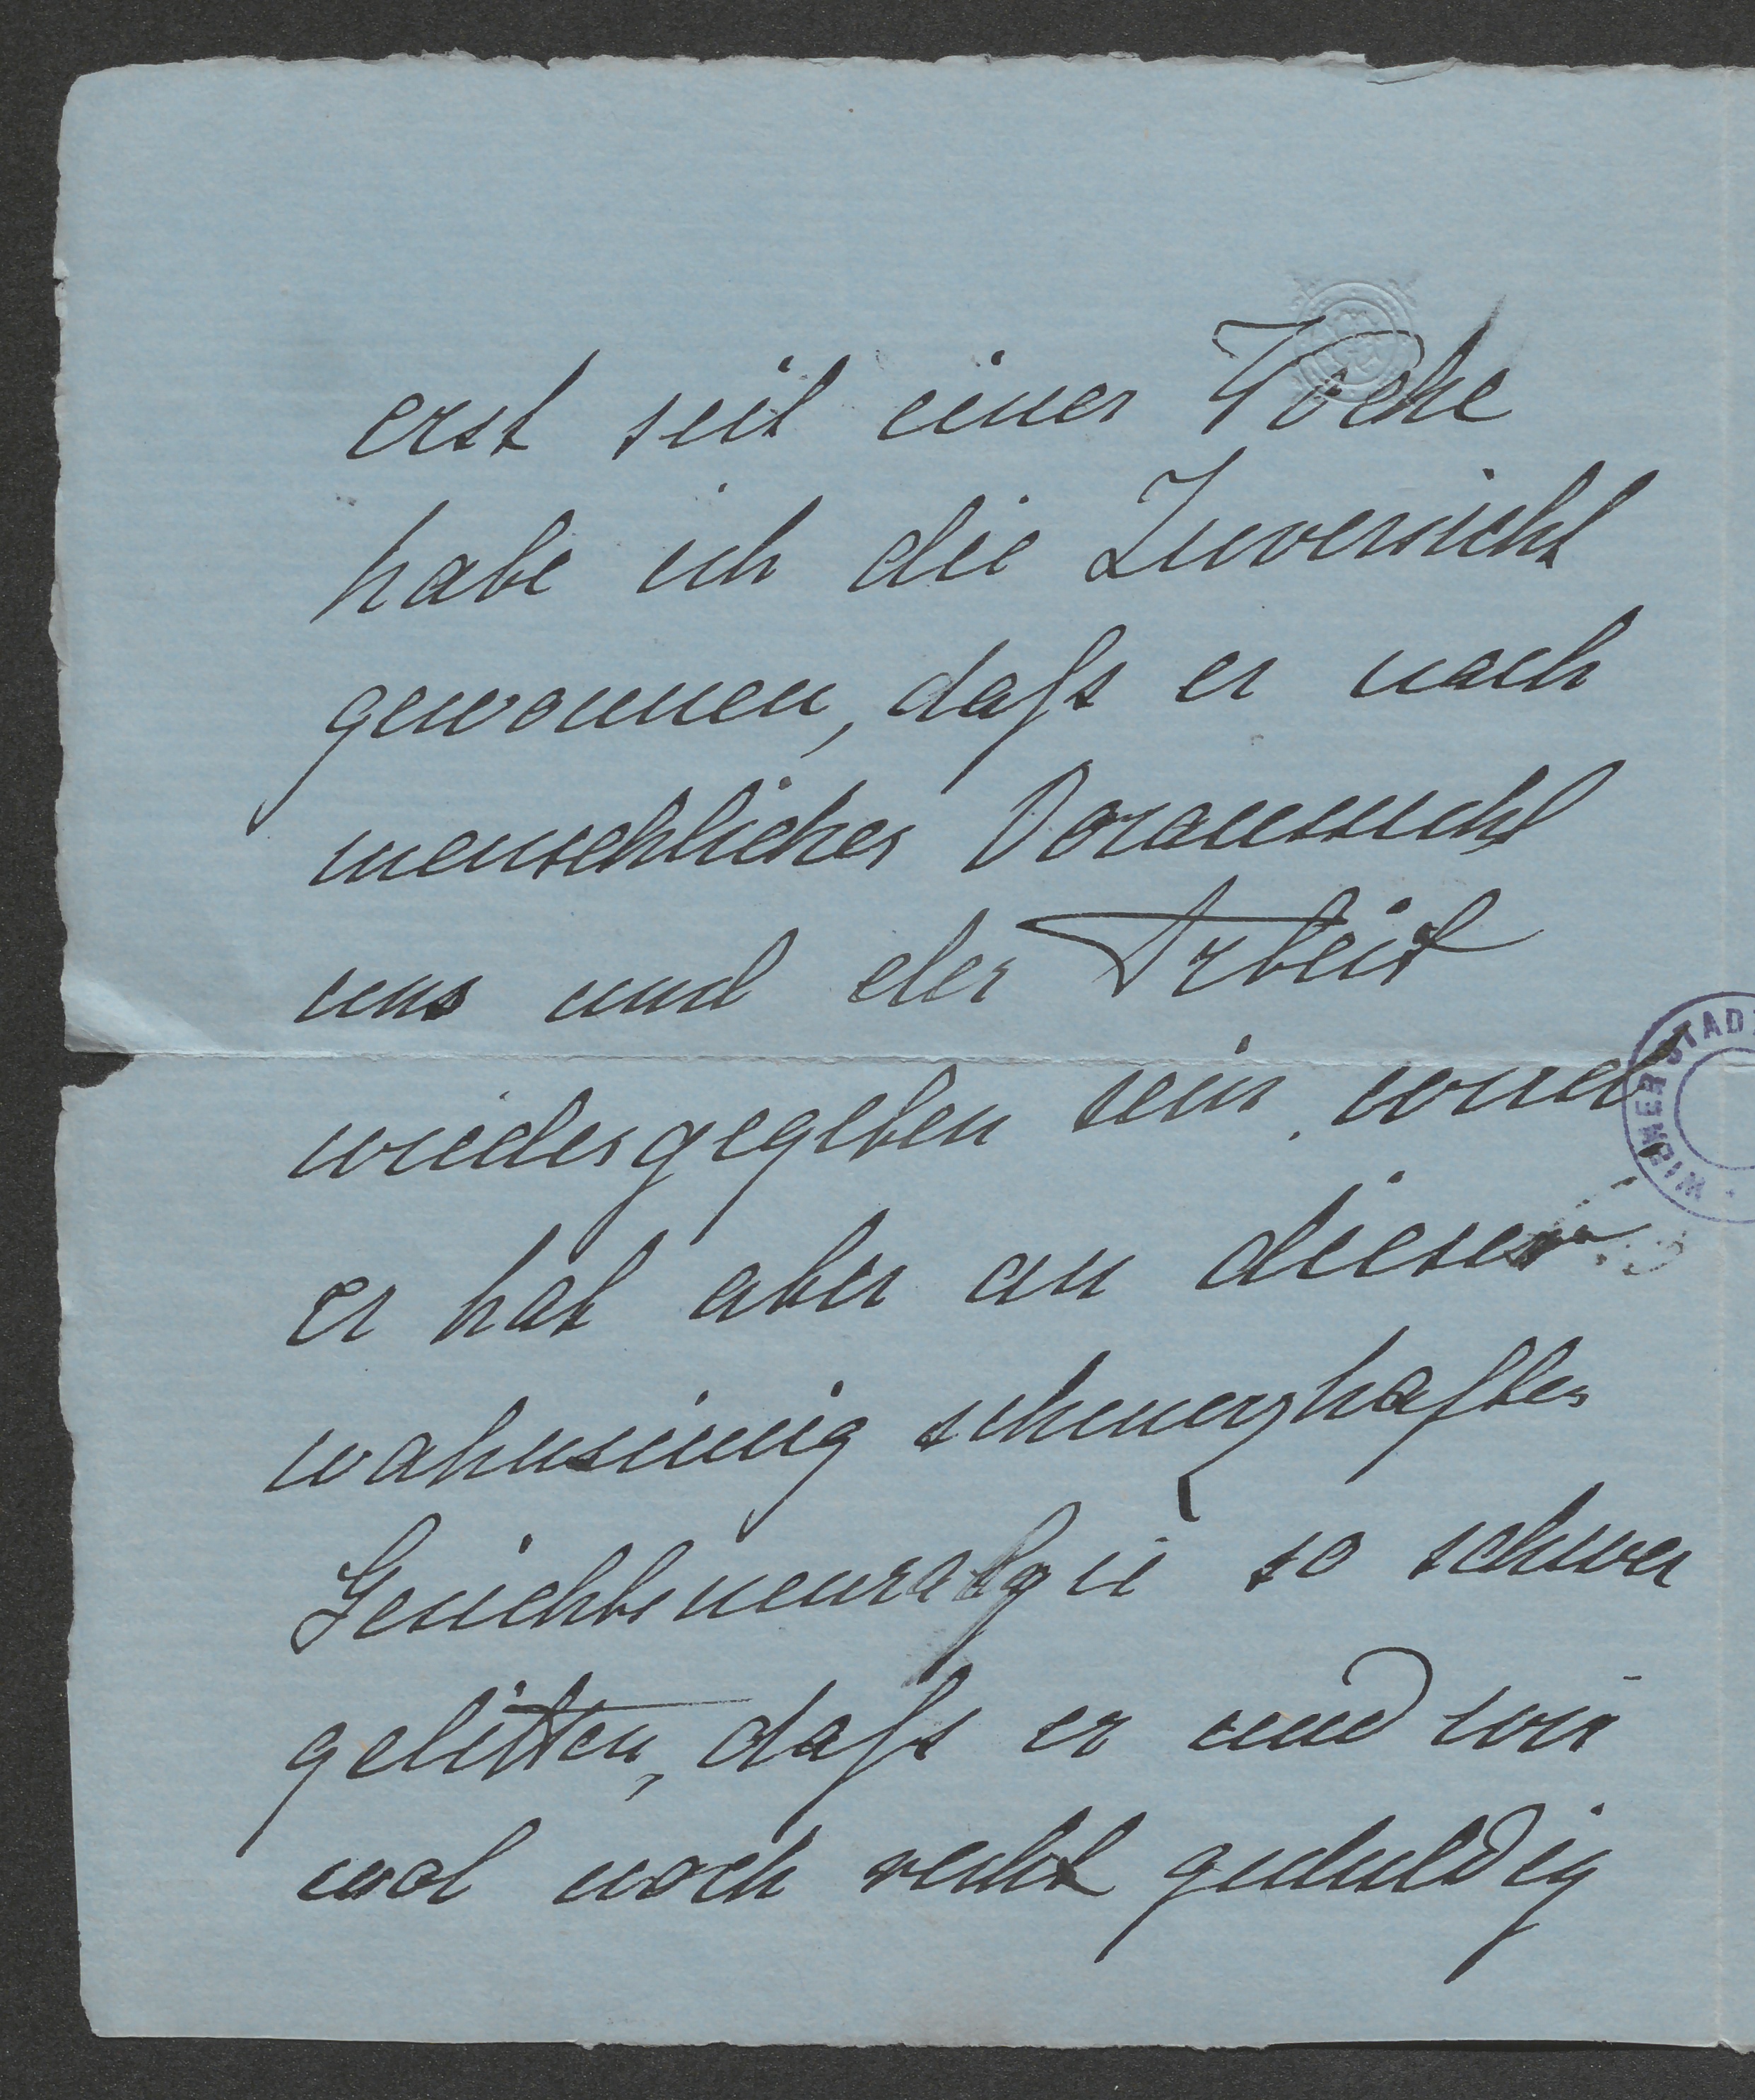 erst seit einer Woche
habe ich die Zuversicht
gewonnen, daſs er nach
menschlicher Voraussicht
uns und der Arbeit
wiedergegeben sein wird
er hat aber an dieser
wahnsinnig schmerzhaften
Gesichtsneuralgie so schwer
gelitten, daſs er und wir
wol noch recht geduldig
WIENER STAD